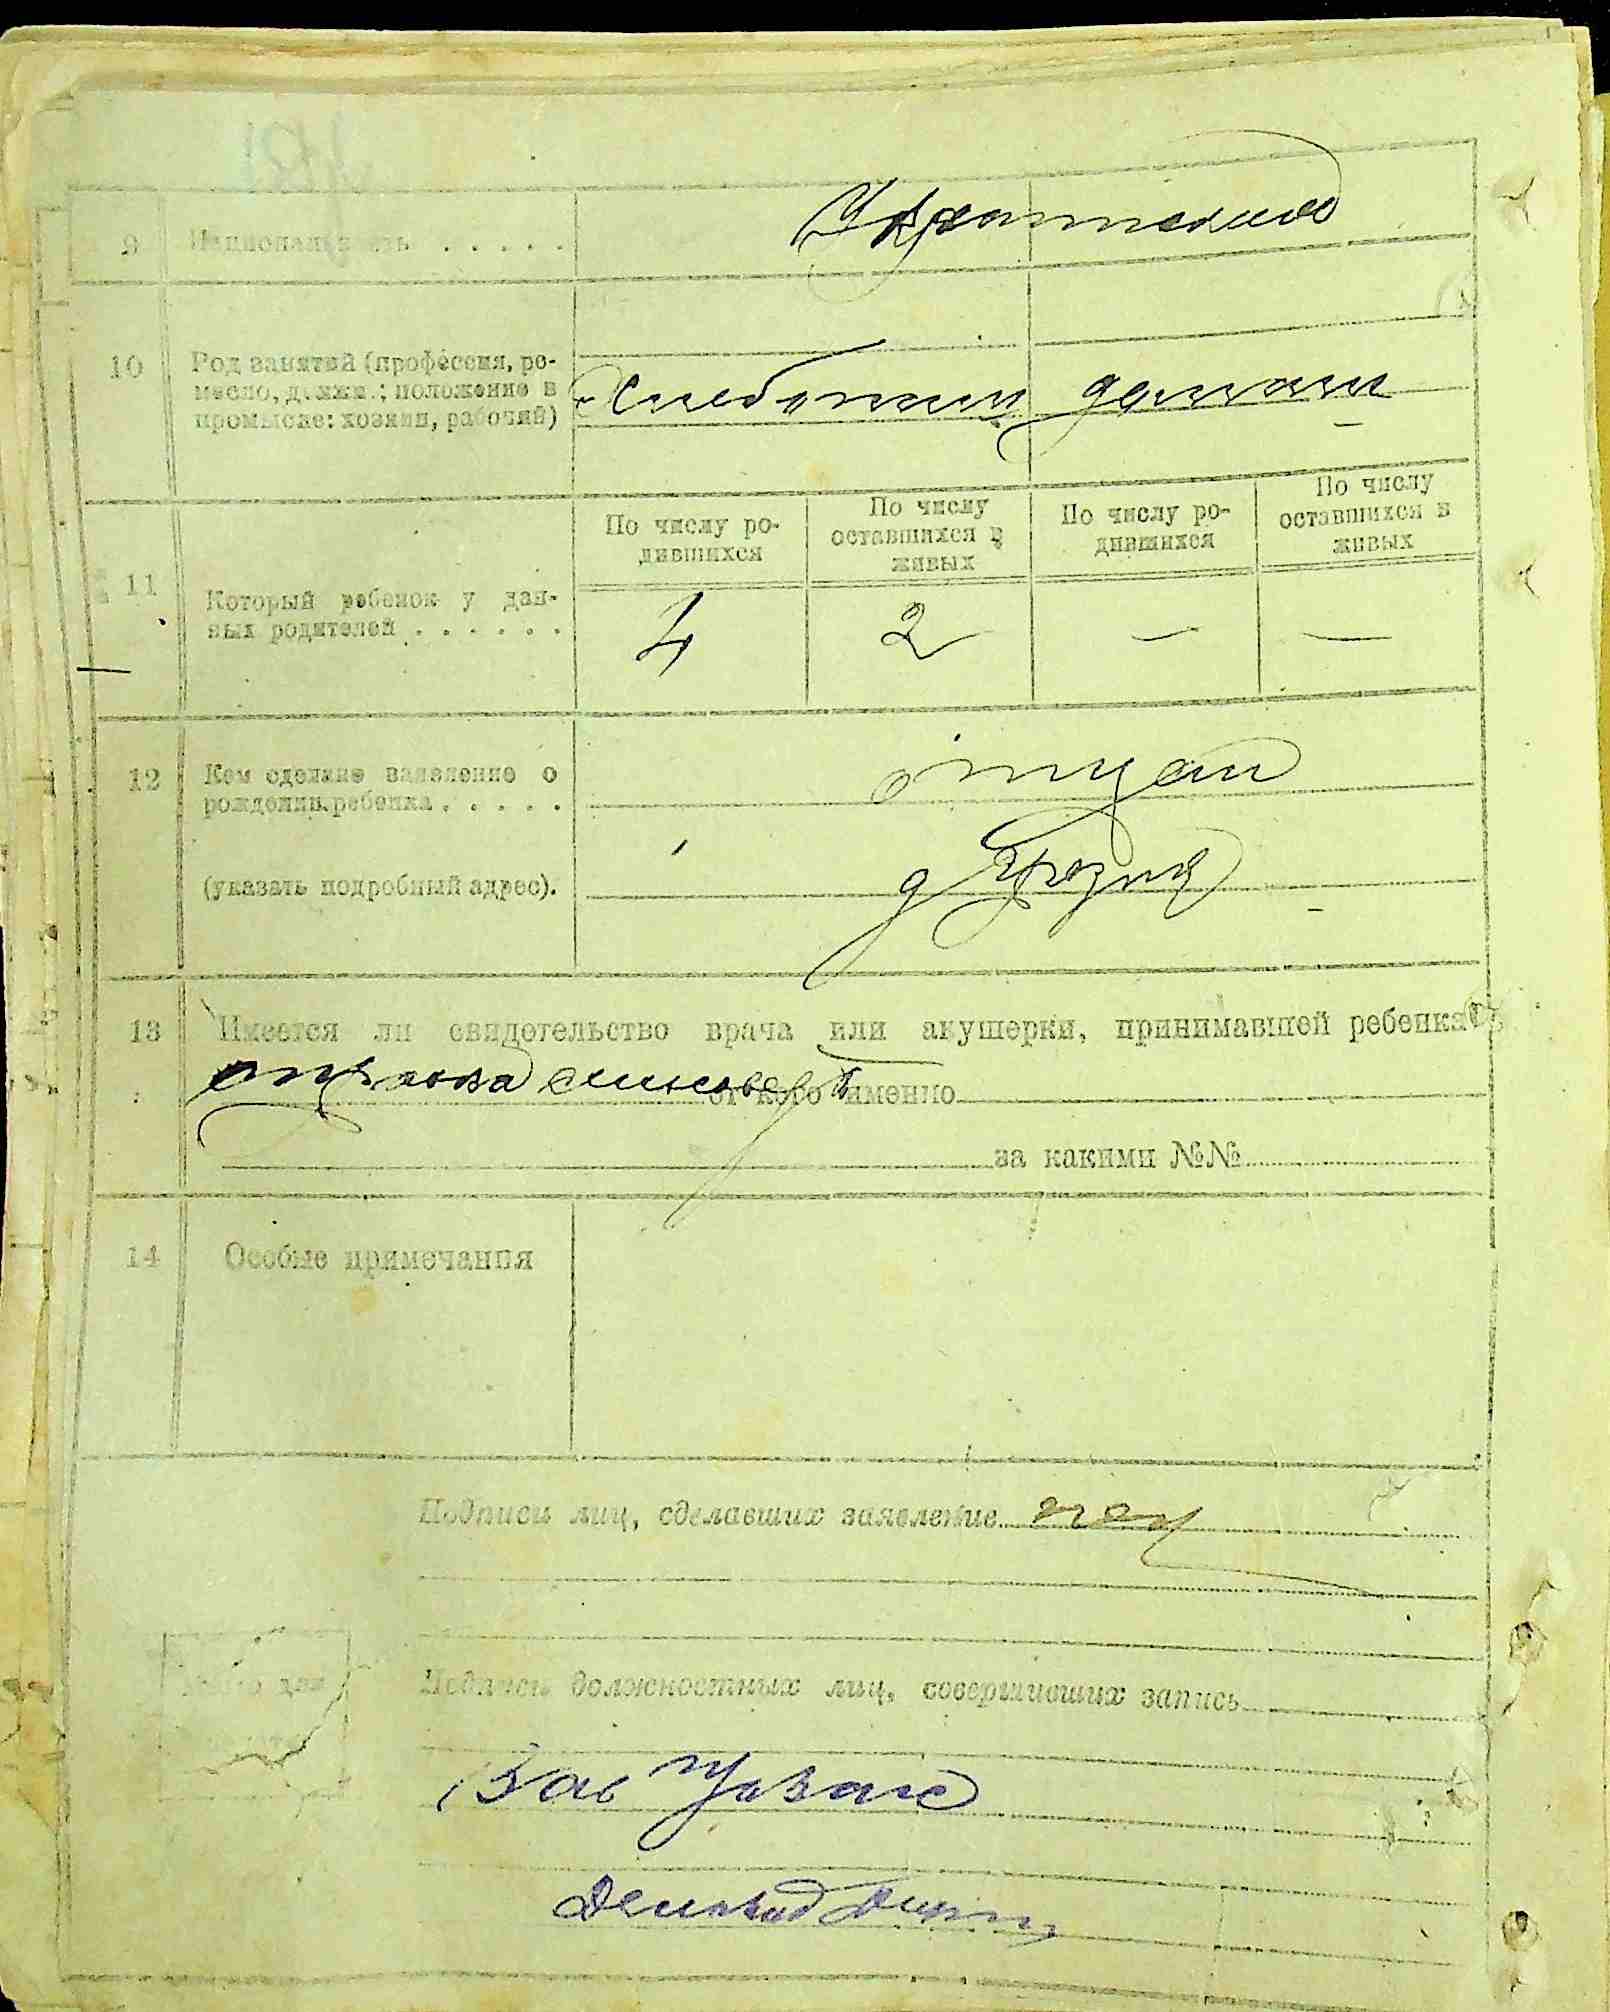 9 Национальность . . . . .
10 Род занятий (профессия, ре-
месло, должн.; положение в
промысле: хозяин, рабочий)
По числу ро-
дившихся
По числу
оставшихся в
живых
По числу ро-
дившихся
По числу
оставшихся в
живых
11 Который ребенок у дан-
ных родителей . . . . . .
4 2 — —
12 Кем сделано заявление о
рождении ребенка . . . . .
отцом
(указать подробный адрес).
д
13 Имеется ли свидетельство врача или акушерки, принимавшей ребенка
от кого именно
за какими №№
14 Особые примечания
Подписи лиц, сделавших заявление
Место для
Подписи должностных лиц, совершивших запись
Зав
Делопвод